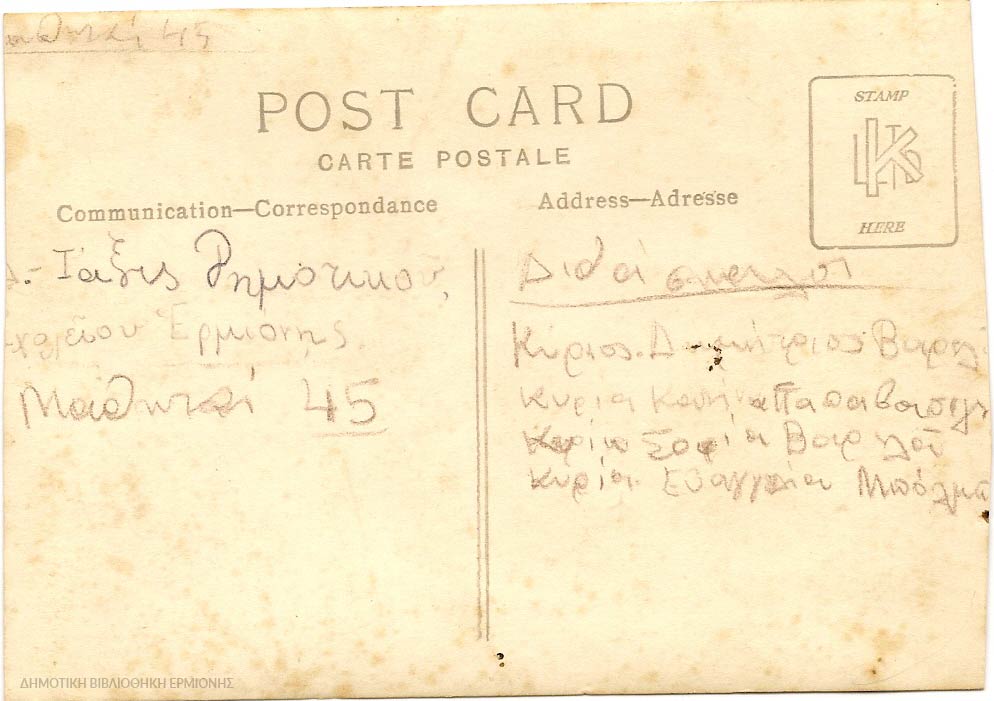 μαθηταί 45
POST CARD
CARTE POSTALE
STAMP
HERE
Communication—Correspondance
Address—Adresse
Τάξις Δημοτικοῦ,
χολεῖου Ἑρμιόνης.
Μαθηταί 45
Διδάσκαλοι
Κύριος. Δημήτριος Βαρελ
Κυρία Παπαβασιλ
Κυρία Σοφία Βαρελοῦ
Κυρία Εὐαγγελία Μπόλμα
ΔΗΜΟΤΙΚΗ ΒΙΒΛΙΟΘΗΚΗ ΕΡΜΙΟΝΗΣ